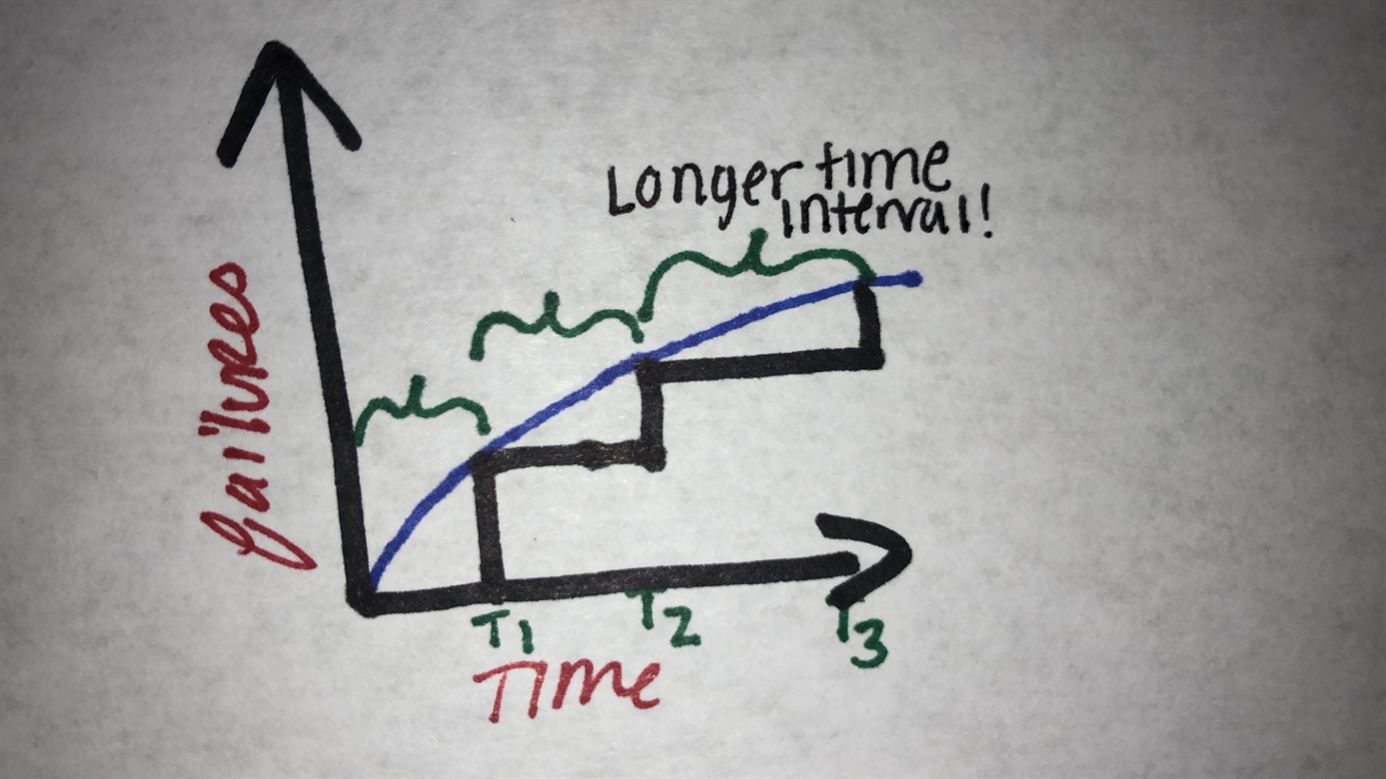 Longer time
interval!
failures
T1
T2
T3
Time